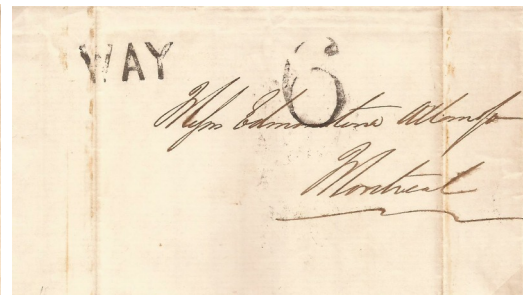 WAY 6
Messrs Edmonstone Allan & Co
Montreal